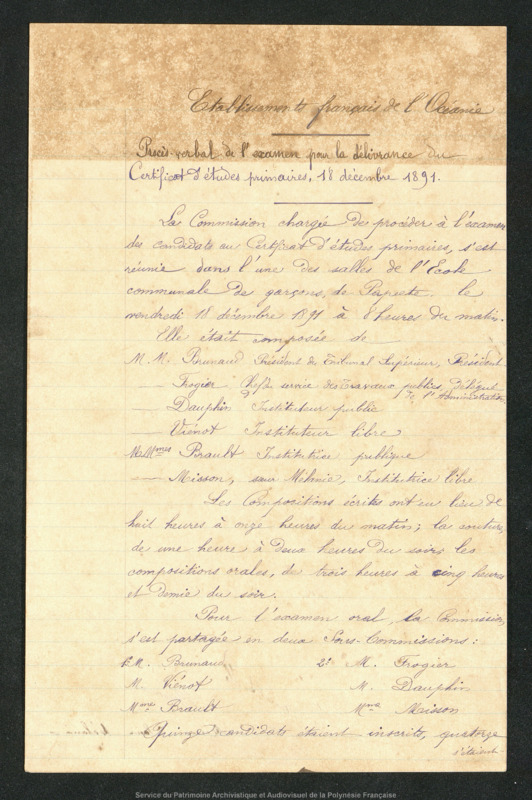 Etablissements français de l'Océanie
Procès-verbal de l'examen pour la délivrance du
Certificat d'études primaires, 18 décembre 1891.
La Commission chargée de procéder à l'examen
des candidats au Certificat d'études primaires, s'est
réunie dans l'une des salles de l'Ecole
communale de garçons, de Papeete, le
vendredi 18 décembre 1891 à 8 heures du matin.
Elle était composée de
M.M. Brunaud Président du Tribunal Supérieur, Président
— Frogier Chef du service des Travaux publics, Délégué
de l'Administration
— Dauphin Instituteur public
— Viénot Instituteur libre
M Mmes Brault Institutrice publique
— Misson, sœur Mélanie, Institutrice libre
Les Compositions écrites ont eu lieu de
huit heures à onze heures du matin; la couture,
de une heure à deux heures du soir; les
compositions orales, de trois heures à cinq heures
et demie du soir.
Pour l'examen oral, la Commission
s'est partagée en deux Sous-Commissions :
1° M. Brunaud 2° M. Frogier
M. Viénot M. Dauphin
Mme Brault Mme Misson
Quinze candidats étaient inscrits, quatorze
s'étaient
Service du Patrimoine Archivistique et Audiovisuel de la Polynésie Française